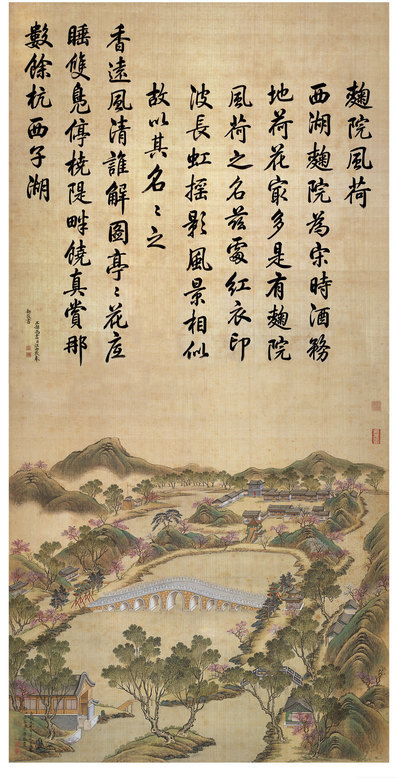 麴院風荷
西湖麴院為宋時酒務
地荷花最多是有麴院
風荷之名茲處紅衣印
波長虹搖影風景相似
故以其名〻之
香遠風清誰解圖亭〻花底
睡雙鳧停橈隄畔饒真賞那
數餘杭西子湖